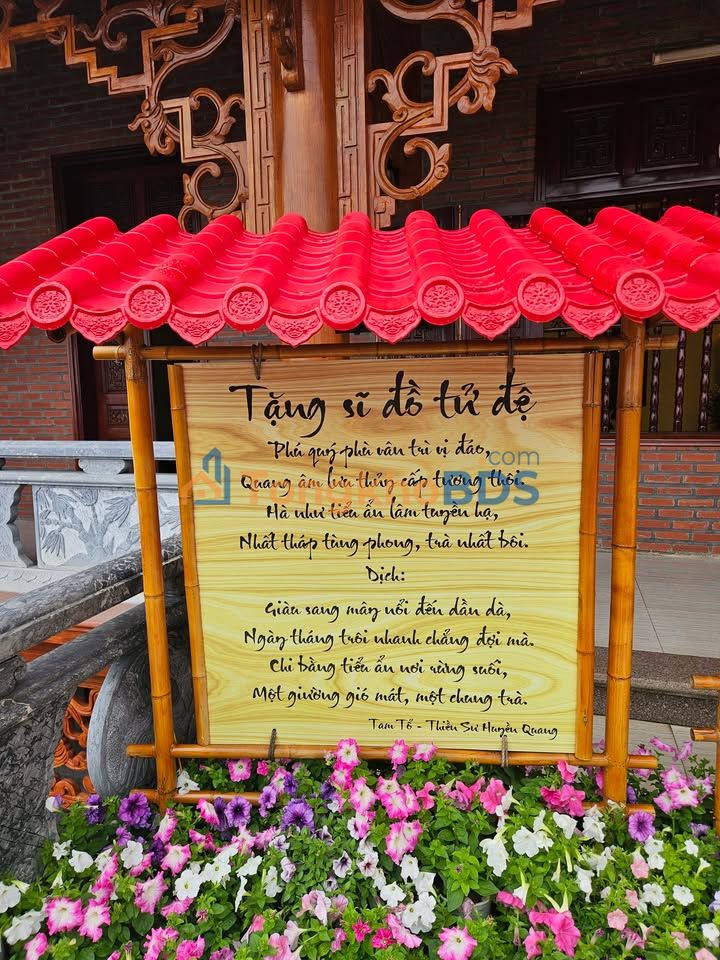 Tặng sĩ đồ tử đệ
Phú quý phù vân trì vị đáo,
Quang âm lưu thủy cấp tương thôi.
Hà như tiểu ẩn lâm tuyền hạ,
Nhất tháp tùng phong, trà nhất bôi.
Dịch:
Giàu sang mây nổi đến dần dà,
Ngày tháng trôi nhanh chẳng đợi mà.
Chi bằng tiểu ẩn nơi rừng suối,
Một giường gió mát, một chung trà.
Tam Tổ - Thiền Sư Huyền Quang